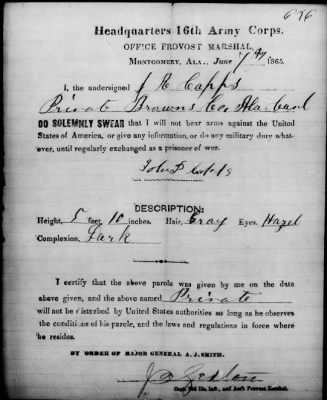 676
Headquarters 16th Army Corps,
OFFICE PROVOST MARSHAL,
MONTGOMERY, ALA., June 7th 1865.
I, the undersigned J R Capps
Private Browns Co. Ala. Cavl
DO SOLEMNLY SWEAR that I will not bear arms against the United
States of America, or give any information, or do any military duty what-
ever, until regularly exchanged as a prisoner of war.
John Capps
DESCRIPTION:
Height, 5 feet 10 inches. Hair, Gray Eyes. Hazel
Complexion, Dark
I certify that the above parole was given by me on the date
above given, and the above named Private
will not be disturbed by United States authorities so long as he observes
the conditions of his parole, and the laws and regulations in force where
he resides.
BY ORDER OF MAJOR GENERAL A. J. SMITH.
Capt. Ills. Inf., and Ass't Provost Marshal.